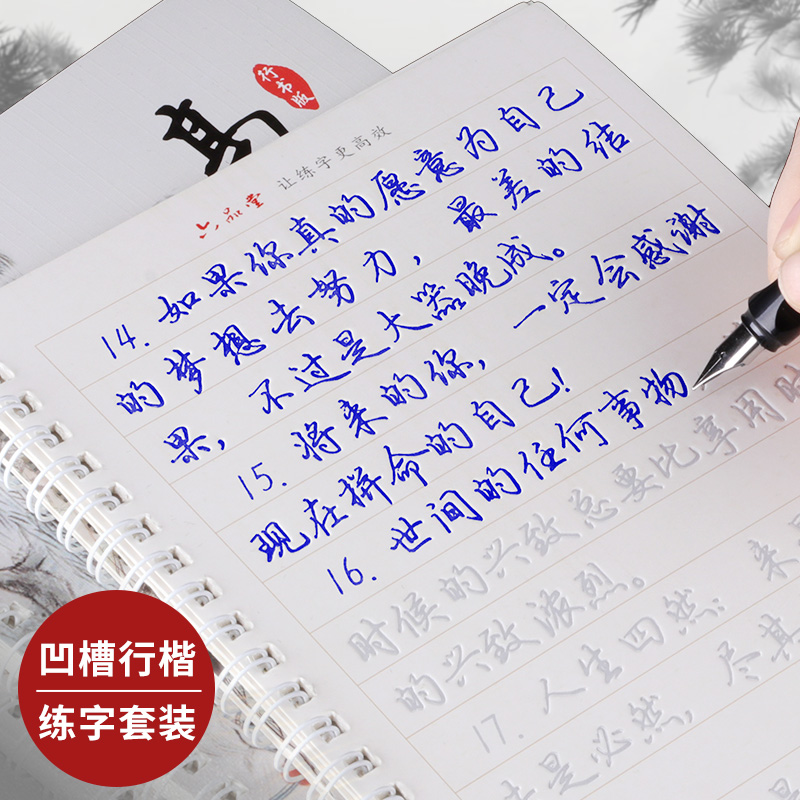 行书版
六品堂 让练字更高效
14. 如果你真的愿意为自己
的梦想去努力，最差的结
果，不过是大器晚成。
15. 将来的你，一定会感谢
现在拼命的自己！
16. 世间的任何事物
时候的兴致总要比享用时
的兴致浓烈。
17. 人生四然：来
是必然，尽其
凹槽行楷
练字套装